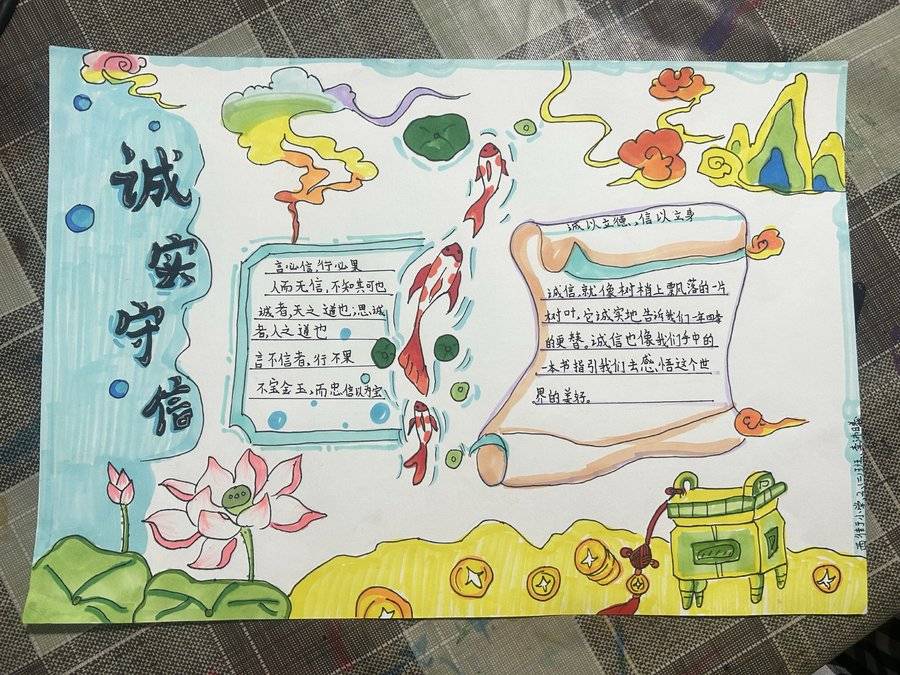 诚实守信
言必信,行必果
人而无信,不知其可也
诚者,天之道也;思诚
者,人之道也
言不信者,行不果
不宝金玉,而忠信以为宝
诚以立德,信以立身
诚信,就像树梢上飘落的一片
树叶,它诚实地告诉我们一年四季
的更替。诚信也像我们手中的
一本书指引我们去感悟这个世
界的美好。
小学2.(二)班